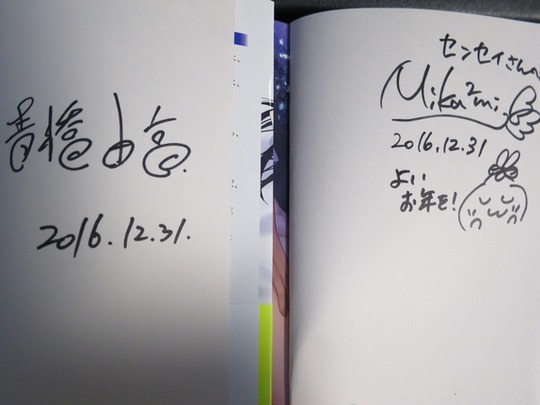 青橋由高
2016.12.31.
センセイさんへ
Mika2mi.
2016.12.31
よい
お年を!